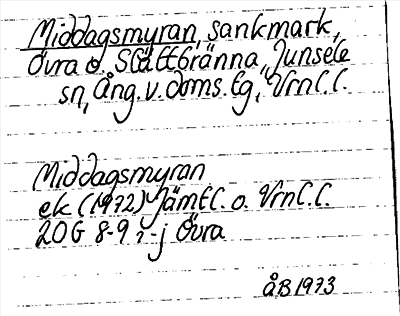 Middagsmyran, sankmark,
Övra o. Slåttbränna, Junsele
sn, Ång. v. doms. lg, Vrnl.l.
Middagsmyran
ek (1972) Jämtl. o. Vrnl.l.
20G 8-9 i-j Övra
ÅB 1973